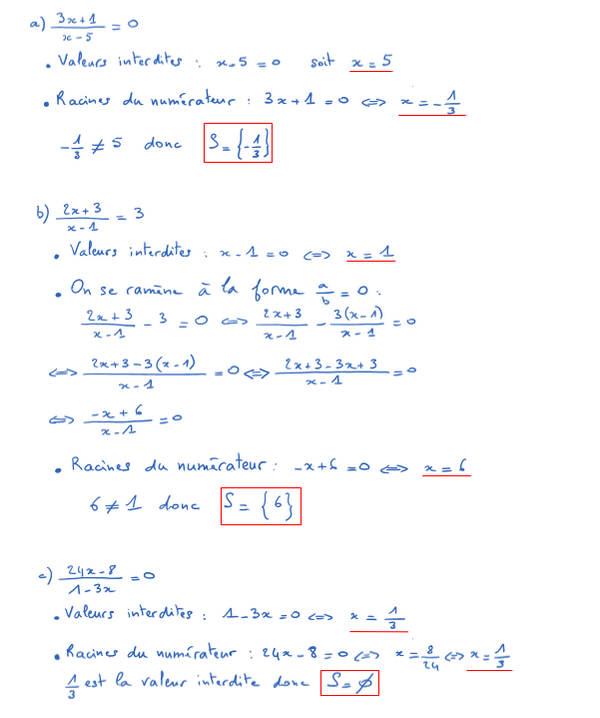 a) (3x+1)/(x-5) = 0
• Valeurs interdites : x-5 = 0 soit x = 5
• Racines du numérateur : 3x+1 = 0 <=> x = -1/3
-1/3 ≠ 5 donc S = {-1/3}
b) (2x+3)/(x-1) = 3
• Valeurs interdites : x-1 = 0 <=> x = 1
• On se ramène à la forme a/b = 0 :
(2x+3)/(x-1) - 3 = 0 <=> (2x+3)/(x-1) - 3(x-1)/(x-1) = 0
<=> (2x+3-3(x-1))/(x-1) = 0 <=> (2x+3-3x+3)/(x-1) = 0
<=> (-x+6)/(x-1) = 0
• Racines du numérateur : -x+6 = 0 <=> x = 6
6 ≠ 1 donc S = {6}
c) (24x-8)/(1-3x) = 0
• Valeurs interdites : 1-3x = 0 <=> x = 1/3
• Racines du numérateur : 24x-8 = 0 <=> x = 8/24 <=> x = 1/3
1/3 est la valeur interdite donc S = ∅